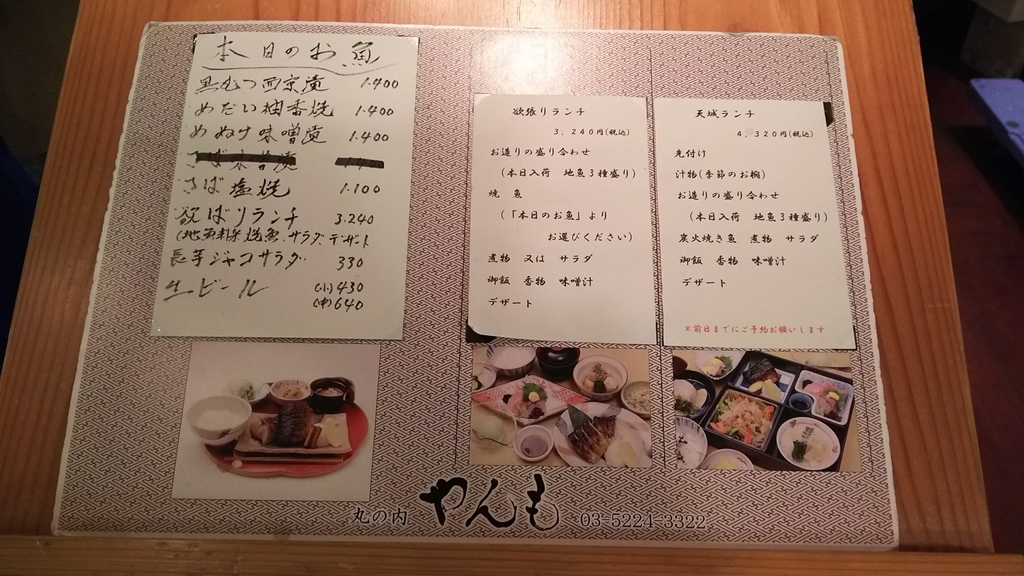 本日のお魚
黒むつ西京漬 1.400
めだい柚香焼 1.400
めぬけ味噌漬 1.400
さば塩焼 1.100
欲ばりランチ 3.240
(地魚刺身 焼魚、サラダ、デザート
長芋ジャコサラダ 330
生ビール (小)430
(中)640
欲張りランチ
3,240円(税込)
お造りの盛り合わせ
(本日入荷 地魚3種盛り)
焼 魚
(「本日のお魚」より
お選びください)
煮物 又は サラダ
御飯 香物 味噌汁
デザート
天城ランチ
4,320円(税込)
先付け
汁物(季節のお椀)
お造りの盛り合わせ
(本日入荷 地魚3種盛り)
炭火焼き魚 煮物 サラダ
御飯 香物 味噌汁
デザート
*前日までにご予約お願いします
丸の内 やんも 03-5224-3322